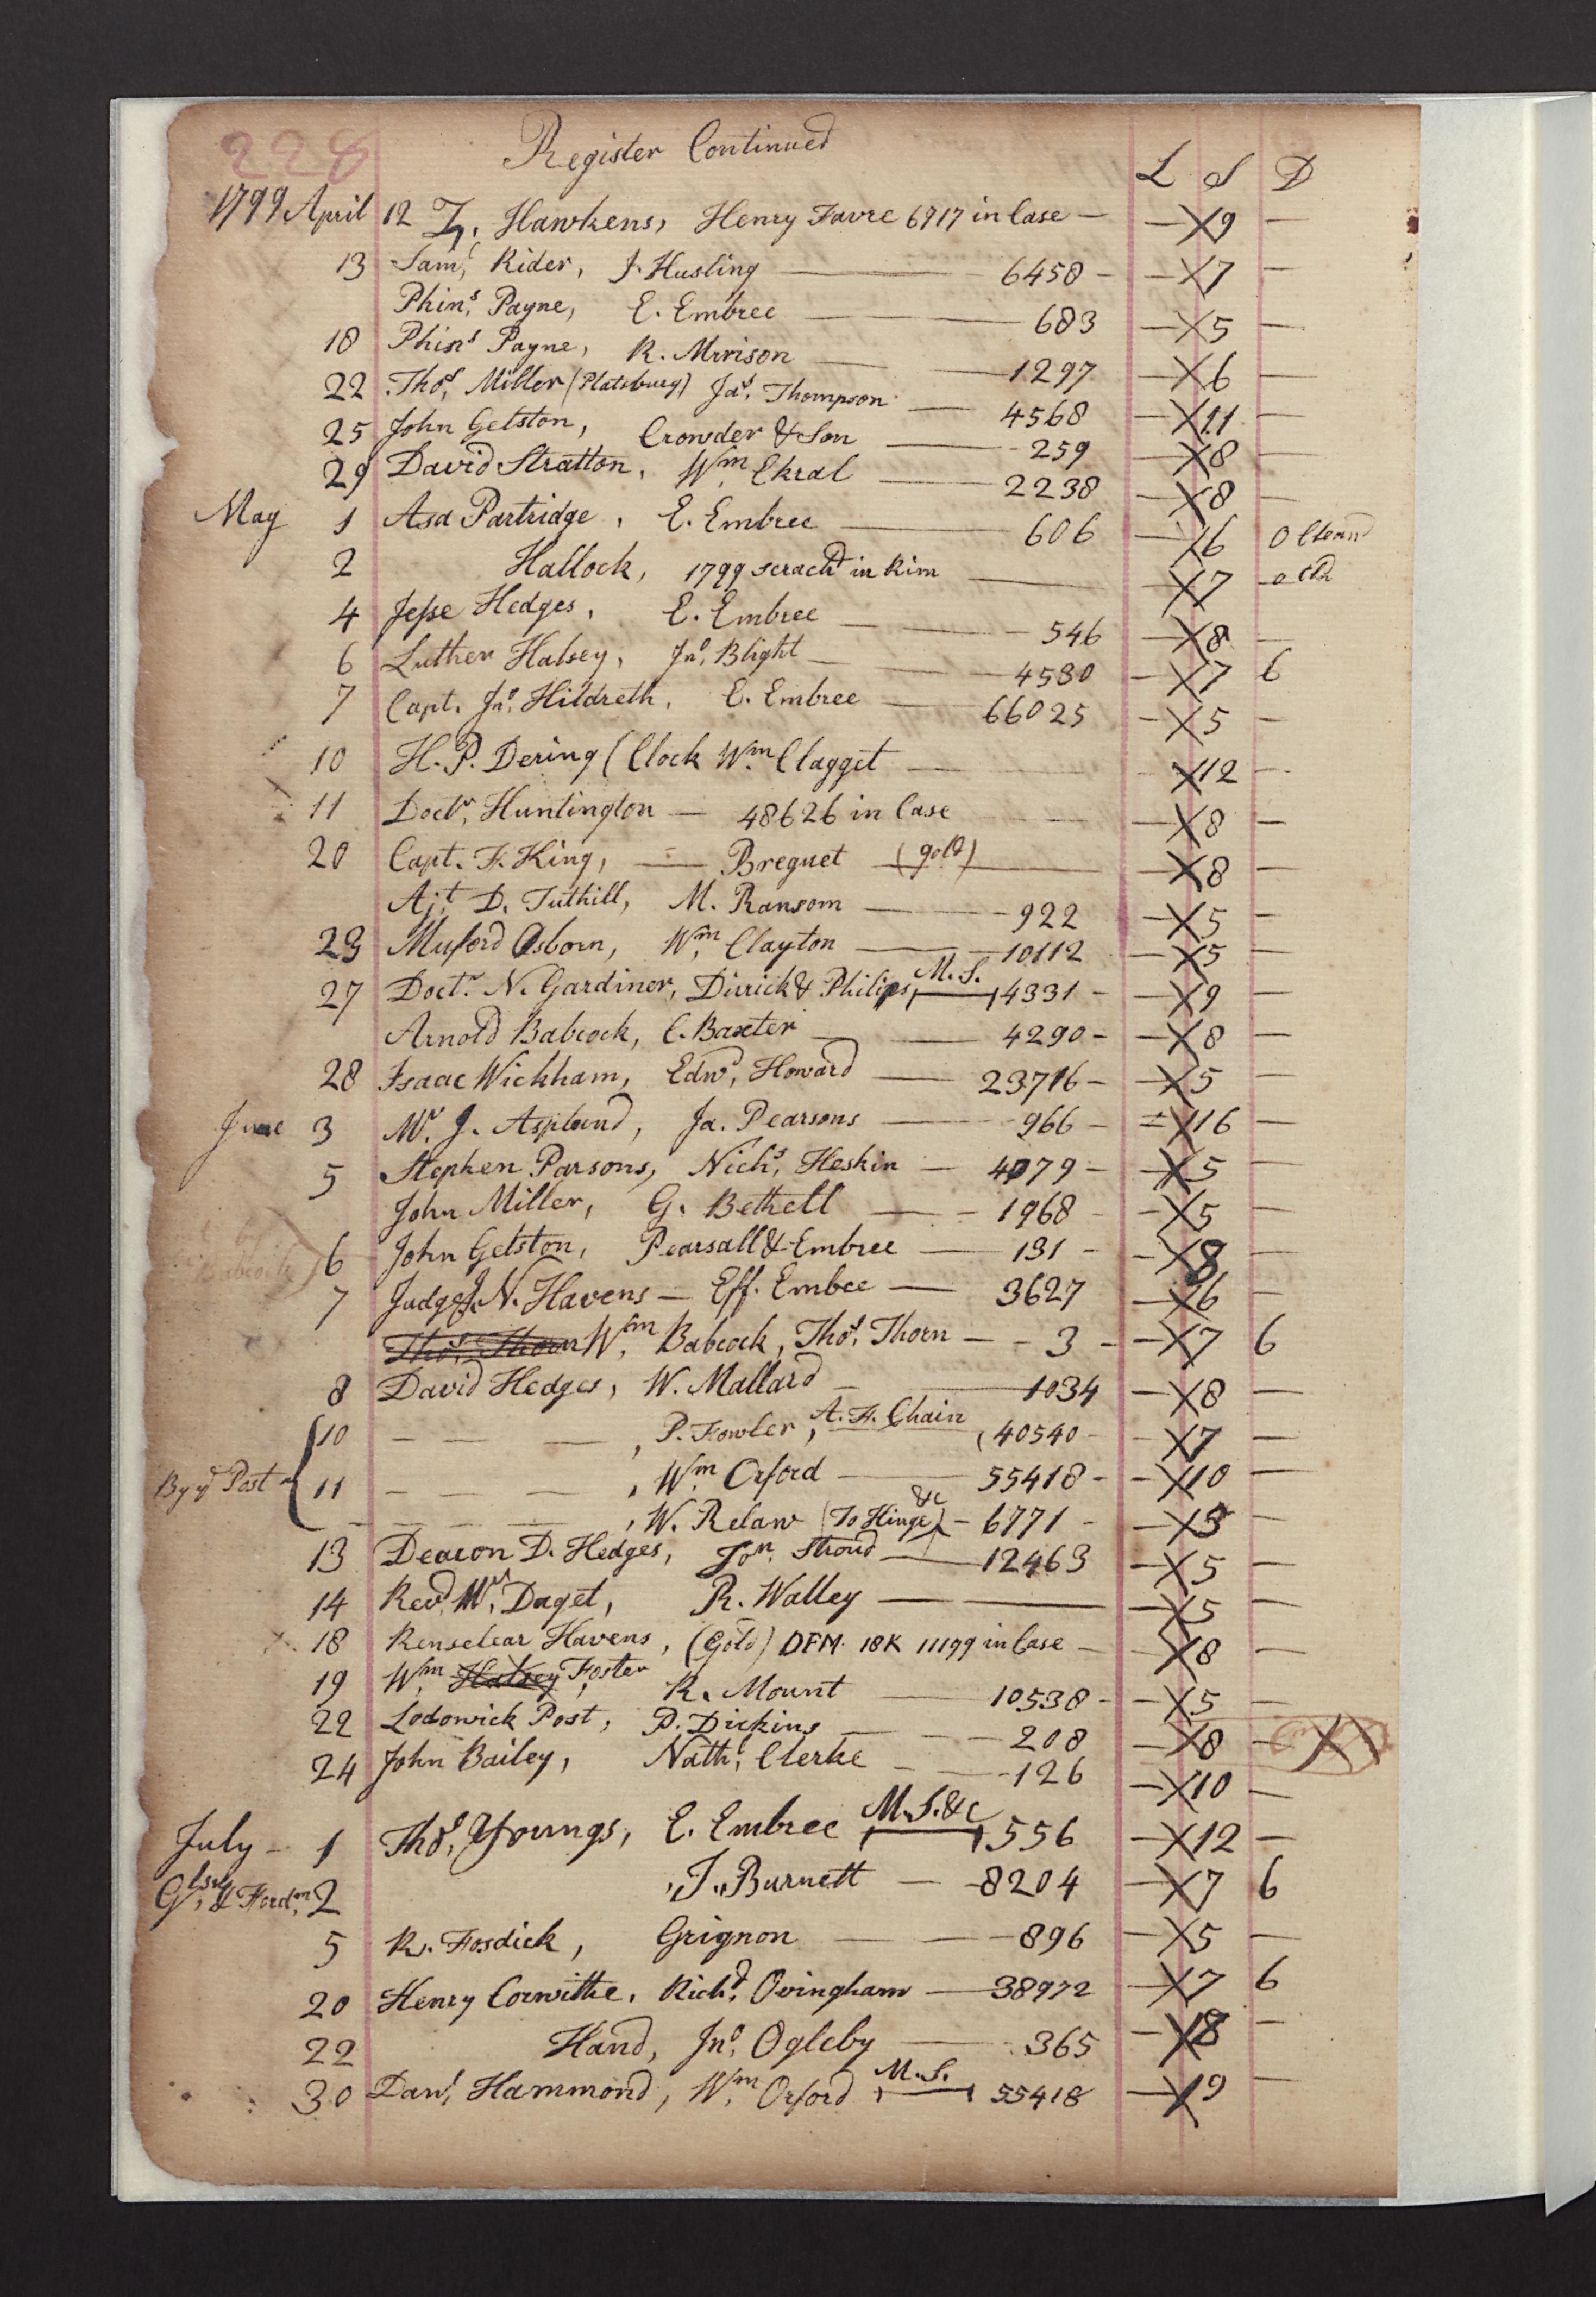 228
Register Continued
L S D
1799 April 12 Z. Hawkens, Henry Favre 6717 in Case — — X 9 —
13 Saml, Rider, J. Husling — 6458 — — X 7 —
Phins, Payne, E. Embree — 683 — X 5 —
18 Phins Payne, R. Mrrison — 1297 — X 6 —
22 Thos, Miller (Platsburg) Jas, Thompson — 4568 — X 11 —
25 John Gelston, Crowder & Son — 259 — X 8 —
29 David Stratton, Wm, Ekral — 2238 — X 8 —
May 1 Asa Partridge, E. Embree — 606 — X 6 0
2 Hallock, 1799 scrachd in Rim — X 7
4 Jesse Hedges, E. Embree — 546 — X 8 —
6 Luther Halsey, Jno, Blight — 4580 — X 7 6
7 Capt. Jno, Hildreth, E. Embree — 66025 — X 5 —
10 H. P. Dering (Clock Wm, Clagget — X 12 —
11 Doctr, Huntington — 48626 in Case — X 8 —
20 Capt. F. King, — Breguet (gold) — X 8 —
Ajt, D. Tuthill, M. Ransom — 922 — X 5 —
23 Muford Osborn, Wm, Clayton — 10112 — X 5 —
27 Doctr. N. Gardiner, Dirrick & Philips, M. S. 4331 — — X 9 —
Arnold Babcock, C. Baxter — 4290 — — X 8 —
28 Isaac Wickham, Edwd, Howard — 23716 — — X 5 —
June 3 Mr. J. Aspland, Ja. Pearsons — 966 — = X 16 —
5 Stephen Parsons, Nichs, Heskin — 4079 — — X 5 —
John Miller, G. Bethell — 1968 — — X 5 —
6 John Gelston, Pearsall & Embree — 131 — — X 8 —
7 Judge J. N. Havens — Eff. Embee — 3627 — X 6 —
Thos, Thorn Wm, Babcock, Thos, Thorn — — 3 — — X 7 6
8 David Hedges, W. Mallard — 1034 — X 8 —
10 — — — , P. Fowler, A. F. Chain (40540 — — X 7 —
By yd Post 11 — — — , Wm, Orford — 55418 — — X 10 —
— — — , W. Relaw (To Hinge &c) — 6771 — — X 3 —
13 Deacon D. Hedges, Jon, Stroud — 12463 — X 5 —
14 Revd, Mr, Daget, R. Walley — X 5 —
18 Renselear Havens, (Gold) DFM. 18K 11199 in Case — — X 8 —
19 Wm, Halsey Foster, R. Mount — 10538 — — X 5 —
22 Lodowick Post, P. Dickins — 208 — X 8 —
24 John Bailey, Nathl, Clerke — 126 — X 10 —
July — 1 Thos, Youngs, E. Embree M. S. &c 556 — X 12 —
2 , J. Burnett — 8204 — X 7 6
5 R. Fosdick, Grignon — 896 — X 5 —
20 Henry Corwithe, Richd, Ovingham — 38972 — X 7 6
22 Hand, Jno, Ogleby — 365 — X 8 —
30 Danl, Hammond, Wm, Orford M. S. 55418 — X 9 —